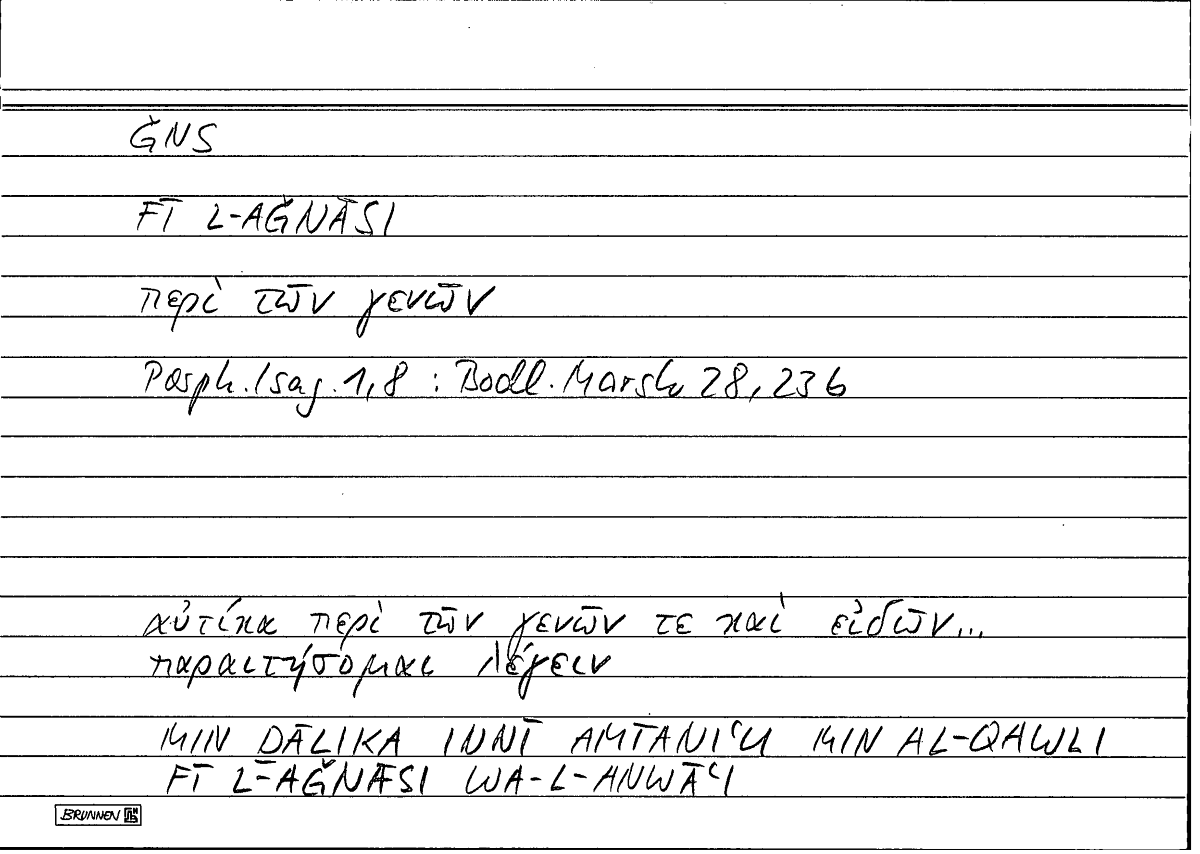 ǦNS
FĪ L-AǦNĀSI
περὶ τῶν γενῶν
Porph. Isag. 1,8 : Bodl. Marsh 28, 23b
αὐτίκα περὶ τῶν γενῶν τε καὶ εἰδῶν...
παραιτήσομαι λέγειν
MIN ḎĀLIKA INNĪ AMTANIʿU MIN AL-QAWLI
FĪ L-AǦNĀSI WA-L-ANWĀʿI
BRUNNEN